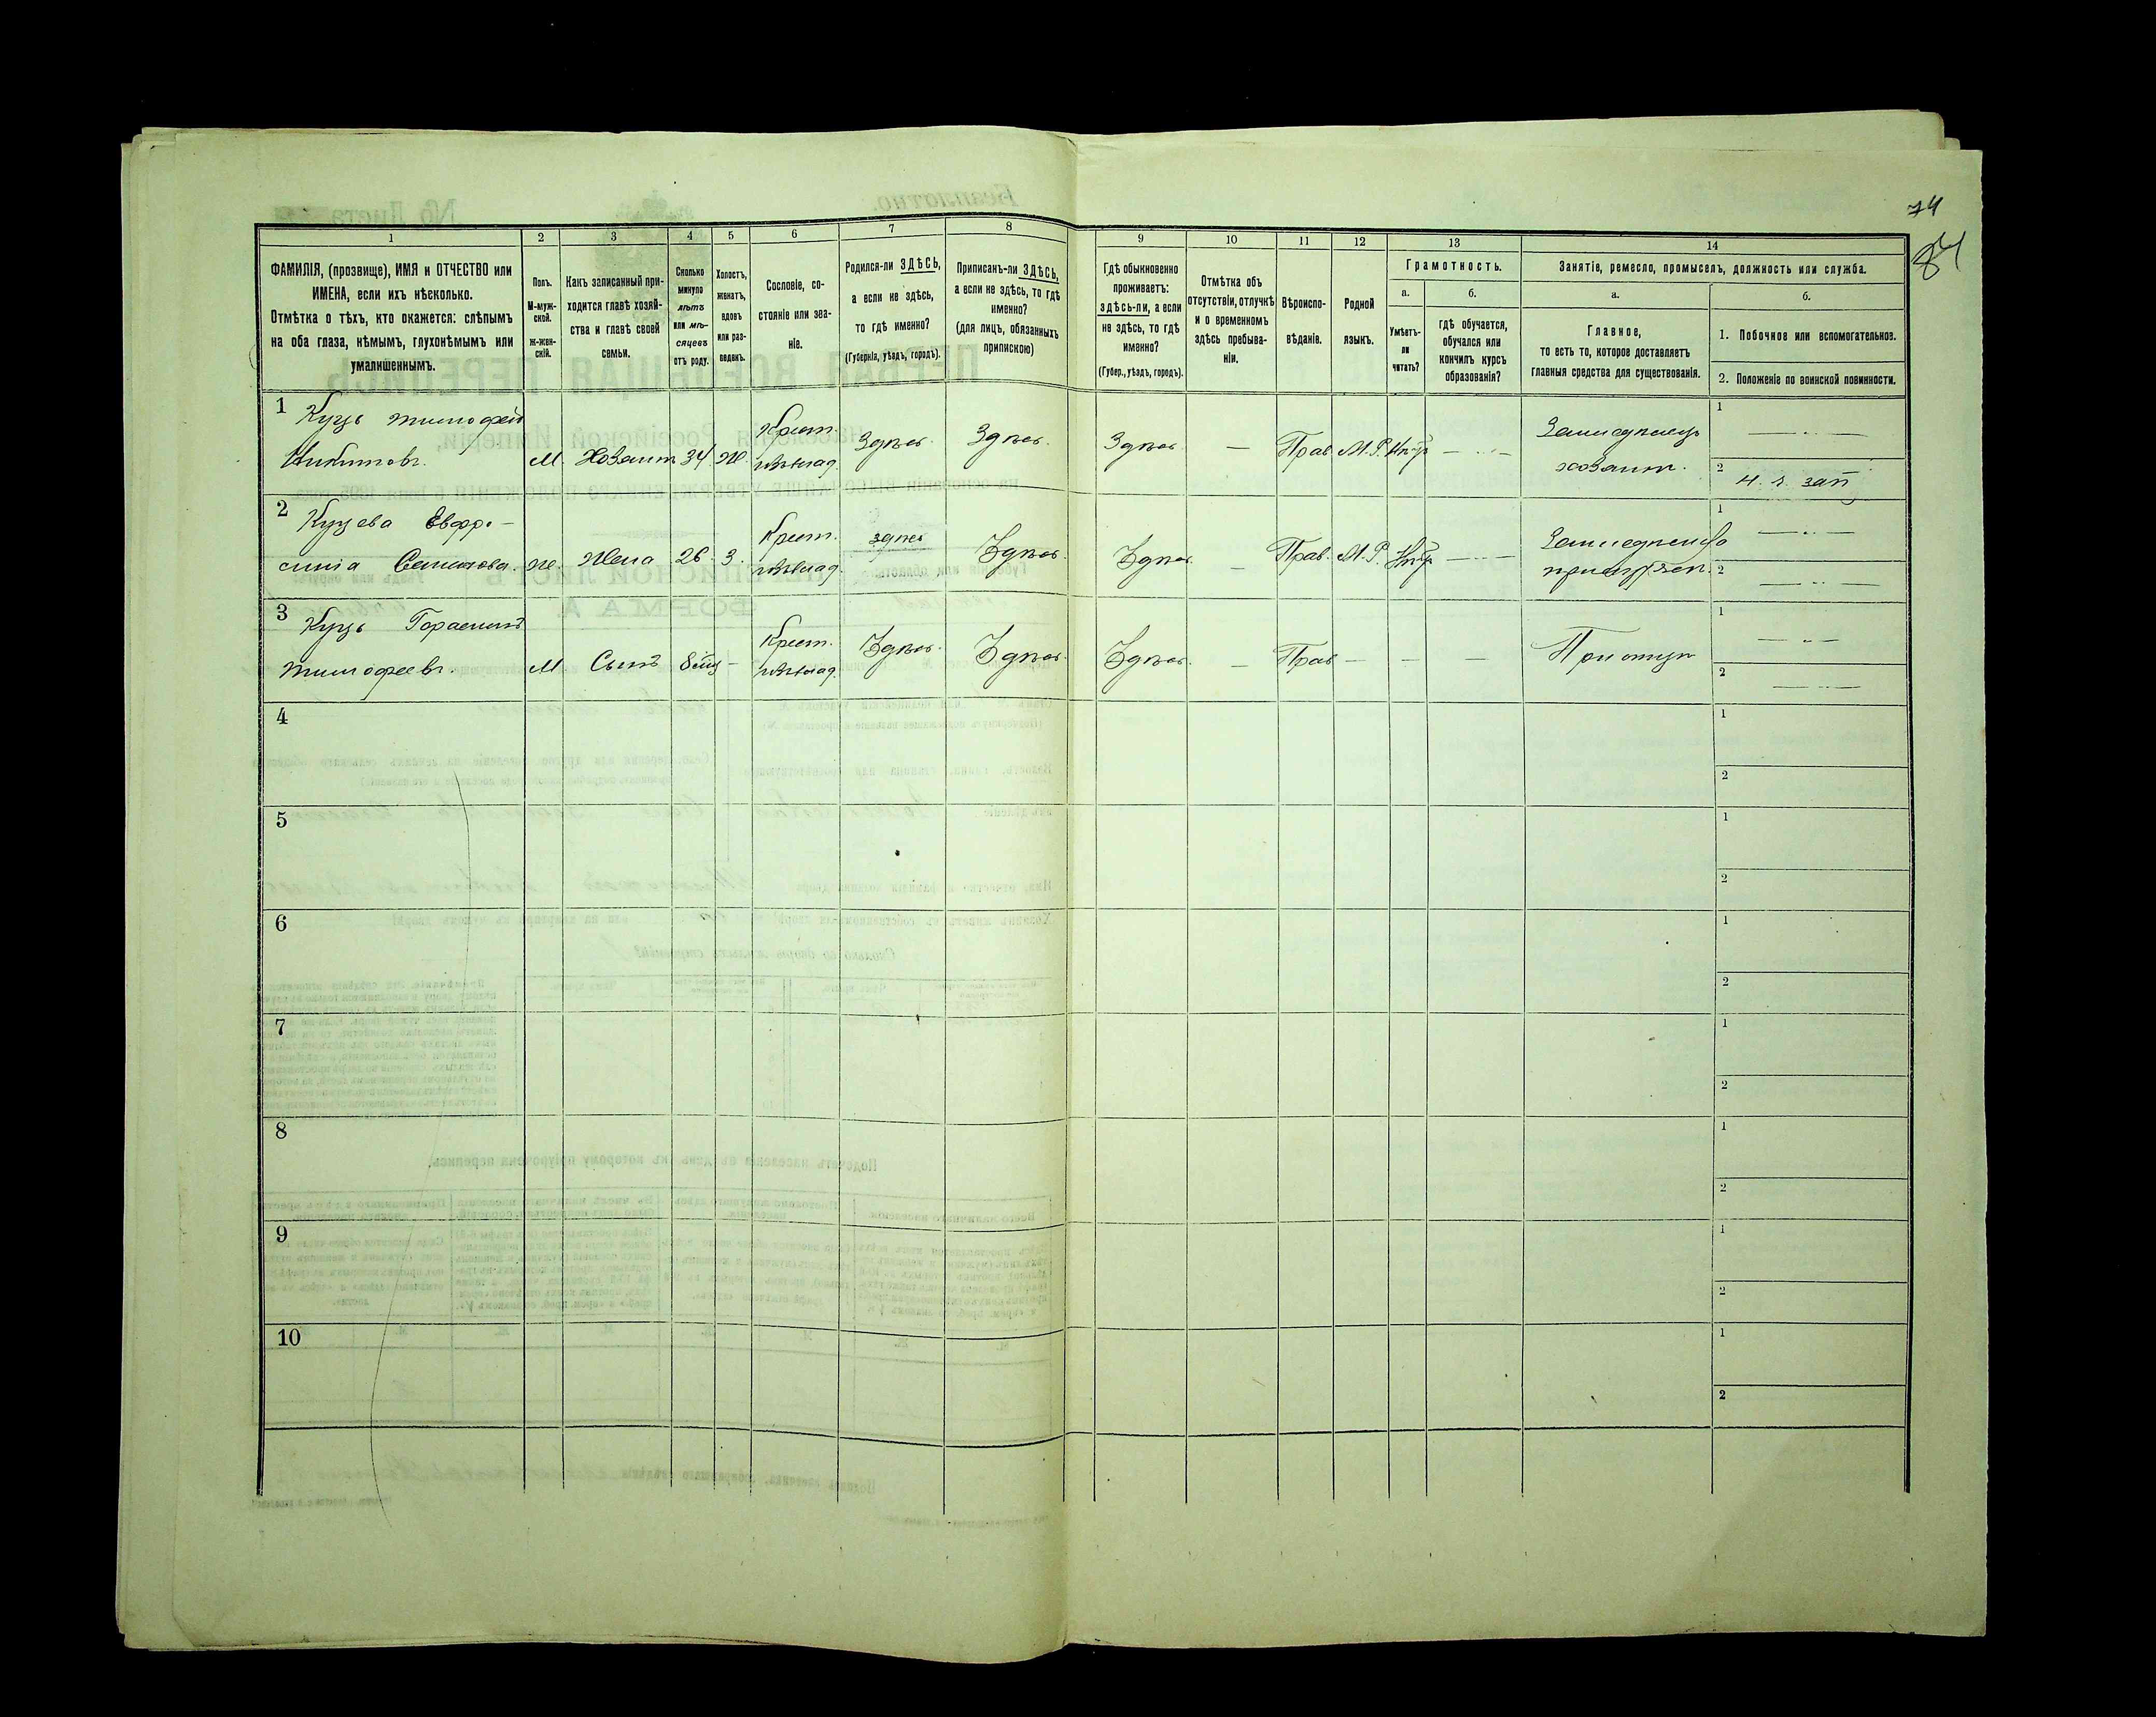 74
84
1
2
3
4
5
6
7
8
9
10
11
12
13
14
ФАМИЛІЯ, (прозвище), ИМЯ и ОТЧЕСТВО или
ИМЕНА, если ихъ нѣсколько.
Отмѣтка о тѣхъ, кто окажется: слѣпымъ
на оба глаза, нѣмымъ, глухонѣмымъ или
умалишеннымъ.
Полъ.
М-муж-
ской.
ж-жен-
скій.
Какъ записанный при-
ходится главѣ хозяй-
ства и главѣ своей
семьи.
Сколько
минуло
лѣтъ
или мѣ-
сяцевъ
отъ роду.
Холостъ,
женатъ,
вдовъ
или раз-
веденъ.
Сословіе, со-
стояніе или зва-
ніе.
Родился-ли ЗДѢСЬ,
а если не здѣсь,
то гдѣ именно?
(Губернія, уѣздъ, городъ).
Приписанъ-ли ЗДѢСЬ,
а если не здѣсь, то гдѣ
именно?
(для лицъ, обязанныхъ
припискою)
Гдѣ обыкновенно
проживаетъ:
здѣсь-ли, а если
не здѣсь, то гдѣ
именно?
(Губер., уѣздъ, городъ).
Отмѣтка объ
отсутствіи, отлучкѣ
и о временномъ
здѣсь пребыва-
ніи.
Вѣроиспо-
вѣданіе.
Родной
языкъ.
Грамотность.
а.
Умѣетъ-
ли
читать?
б.
гдѣ обучается,
обучался или
кончилъ курсъ
образованія?
Занятіе, ремесло, промыселъ, должность или служба.
а.
Главное,
то есть то, которое доставляетъ
главныя средства для существованія.
б.
1. Побочное или вспомогательное.
2. Положеніе по воинской повинности.
1 Куць Тимофей
Никитовъ. М. Хозяинъ 34 Ж. Крест. Здѣсь. Здѣсь. Здѣсь — Прав. М.Р. — Земледѣлецъ
хозяинъ. 1 —
2
2 Куцева Евфро-
синія Семенова. Ж. Жена 26 З. Крест. здѣсь Здѣсь. Здѣсь. — Прав. М.Р. — 1 —
2 —
3 Куць Гарасимъ
Тимофеевъ. М Сынъ Крест. Здѣсь. Здѣсь. Здѣсь. — Прав — — — При отцѣ 1 —
2 —
4 1
2
5 1
2
6 1
2
7 1
2
8 1
2
9 1
2
10 1
2